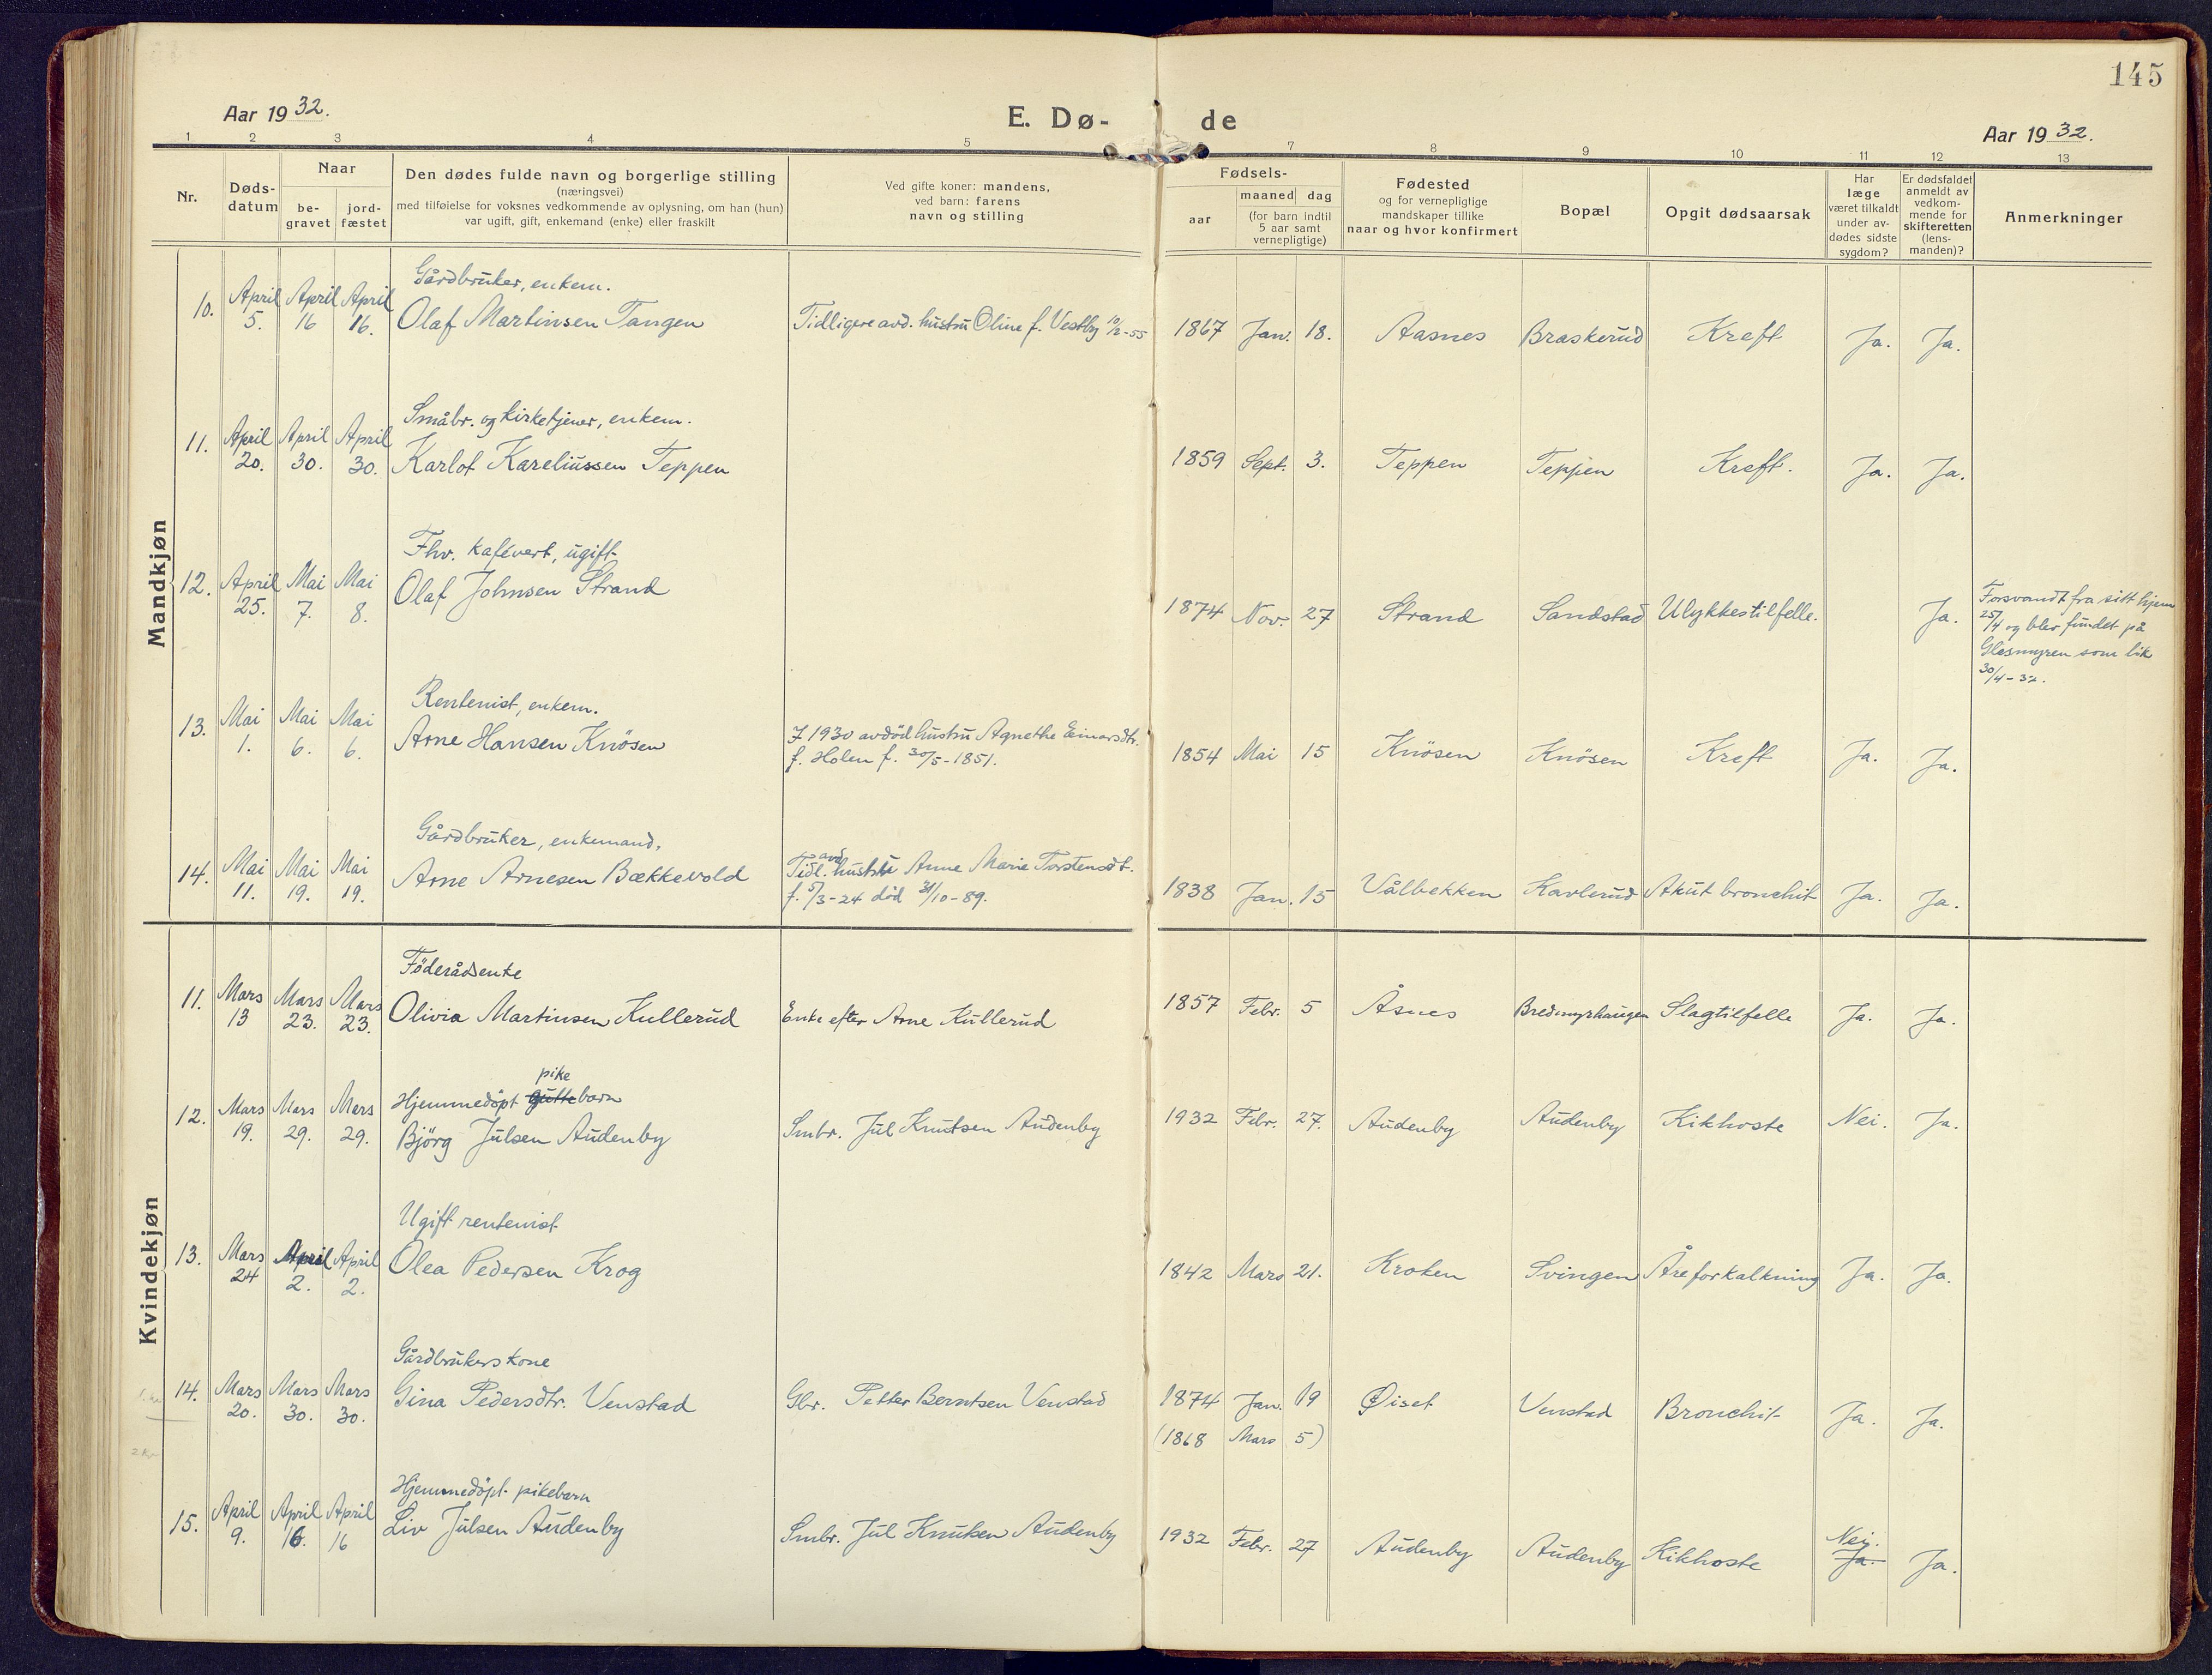 145
Aar 1932.
E. Dø- de
Aar 1932.
1 2 3 4 5 7 8 9 10 11 12 13
Nr.
Døds-
datum
Naar
be-
gravet
jord-
fæstet
Den dødes fulde navn og borgerlige stilling
(næringsvei)
med tilføielse for voksnes vedkommende av oplysning, om han (hun)
var ugift, gift, enkemand (enke) eller fraskilt
Ved gifte koner: mandens,
ved barn: farens
navn og stilling
Fødsels-
aar
maaned dag
(for barn indtil
5 aar samt
vernepligtige)
Fødested
og for vernepligtige
mandskaper tillike
naar og hvor konfirmert
Bopæl
Opgit dødsaarsak
Har
læge
været tilkaldt
under av-
dødes sidste
sygdom?
Er dødsfaldet
anmeldt av
vedkom-
mende for
skifteretten
(lens-
manden)?
Anmerkninger
Mandkjøn
Gårdbruker, enkem.
10. April 5. April 16 April 16. Olaf Martinsen Tangen Tidligere avd. hustru Oline f. Vestby 10/2-55 1867 Jan. 18. Aasnes Braskerud Kreft Ja. Ja.
Småbr. og kirketjener, enkem.
11. April 20. April 30. April 30. Karlot Kareliussen Teppen 1859 Sept. 3. Teppen Teppen Kreft. Ja. Ja.
Fhv. kafévert, ugift
12. April 25. Mai 7. Mai 8. Olaf Johnsen Strand 1874 Nov. 27 Strand Sandstad Ulykkestilfelle. Ja.
Forsvandt fra sitt hjem
25/4 og blev fundet på
Glesmyren som lik
30/4-32.
Rentenist, enkem.
13. Mai 1. Mai 6. Mai 6. Arne Hansen Knösen I 1930 avdöd hustru Agnethe Einarsdtr.
f. Holen f. 30/5-1851. 1854 Mai 15 Knösen Knösen Kreft Ja. Ja.
Gårdbruker, enkemand,
14. Mai 11. Mai 19. Mai 19. Arne Arnesen Bækkevold Tidl. avd. hustru Anne Marie Torstensdt.
f. 5/3-24 död 31/10-89. 1838 Jan. 15 Vålbekken Kavlerud Akut bronchit Ja. Ja.
Kvindekjøn
Föderådsenke
11. Mars 13 Mars 23. Mars 23. Olivia Martinsen Kullerud Enke efter Arne Kullerud 1857 Febr. 5 Åsnes Bredmyrhaugen Slagtilfelle Ja. Ja.
pike
Hjemmedöpt guttebarn
12. Mars 19. Mars 29. Mars 29. Björg Julsen Audenby Smbr. Jul Knutsen Audenby 1932 Febr. 27. Audenby Audenby Kikhoste Nei. Ja.
Ugift rentenist
13. Mars 24 April 2. April 2. Olea Pedersen Krog 1842 Mars 21. Kroken Svingen Åreforkalkning Ja. Ja.
Gårdbrukers kone
14. Mars 20. Mars 30. Mars 30. Gina Pedersdtr. Venstad Gbr. Petter Berntsen Venstad 1874 Jan. 19 Øiset Venstad Bronchit Ja. Ja.
(1868 Mars 5)
Hjemmedöpt pikebarn
15. April 9. April 16. April 16 Liv Julsen Audenby Smbr. Jul Knutsen Audenby 1932 Febr. 27 Audenby Audenby Kikhoste Nei. Ja. Ja.